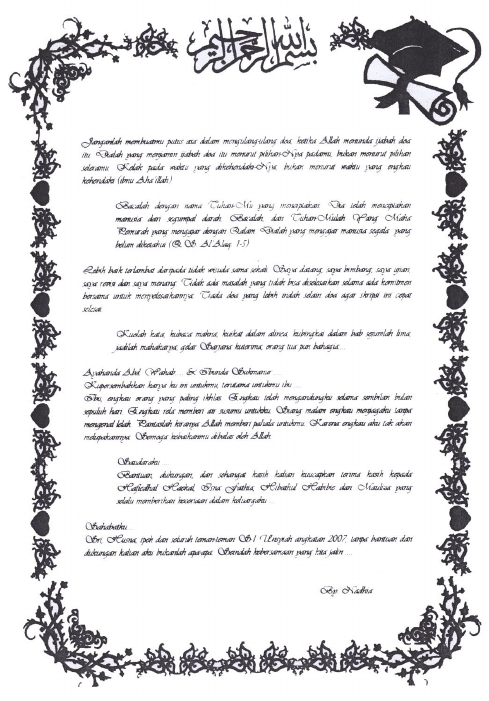 بسم الله الرحمن الرحيم
Janganlah membuatmu putus asa dalam mengulang-ulang doa, ketika Allah menunda ijabah doa
itu. Dialah yang menjamin ijabah doa itu menurut pilihan-Nya padamu, bukan menurut pilihan
seleramu. Kelak pada waktu yang dikehendaki-Nya, bukan menurut waktu yang engkau
kehendaki (ibnu Atha'illah)
Bacalah dengan nama Tuhan-Mu yang menciptakan. Dia telah menciptakan
manusia dari segumpal darah. Bacalah, dan Tuhan-Mulah Yang Maha
Pemurah yang mengajar dengan Qalam. Dialah yang mengajar manusia segala yang
belum diketahui (Q. S. Al'Alaq: 1-5)
Lebih baik terlambat daripada tidak wisuda sama sekali. Saya datang, saya bimbing, saya ujian,
saya revisi dan saya menang. Tidak ada masalah yang tidak bisa diselesaikan selama ada komitmen
bersama untuk menyelesaikannya. Tiada doa yang lebih indah selain doa agar skripsi ini cepat
selesai.
Kuolah kata, kubaca makna, kuikat dalam alinea, kubingkai dalam bab sejumlah lima,
jadilah mahakarya, gelar Sarjana kuterima, orang tua pun bahagia....
Ayahanda Abd. Wahab & Ibunda Sukmaria....
Kupersembahkan karya ku ini untukmu, terutama untukmu ibu....
Ibu, engkau orang yang paling ikhlas. Engkau telah mengandungku selama sembilan bulan
sepuluh hari. Engkau rela memberi air susumu untukku. Siang malam engkau menjagaku tanpa
mengenal lelah. Pantaslah kiranya Allah memberi pahala untukmu. Karena engkau aku tak akan
melupakannya. Semoga kebaikanmu dibalas oleh Allah.
Saudaraku....
Bantuan, dukungan, dan sehangat kasih kalian kuucapkan terima kasih kepada
Haikal, Isra Fathia, Hibatul Habibie dan Mauliza yang
selalu memberikan keceriaan dalam keluargaku....
Sahabatku....
Sri, Husna, ipek dan seluruh teman-teman S-1 Unsyiah angkatan 2007, tanpa bantuan dan
dukungan kalian aku bukanlah apa-apa. Seindah kebersamaan yang kita jalin....
By. Nadhia